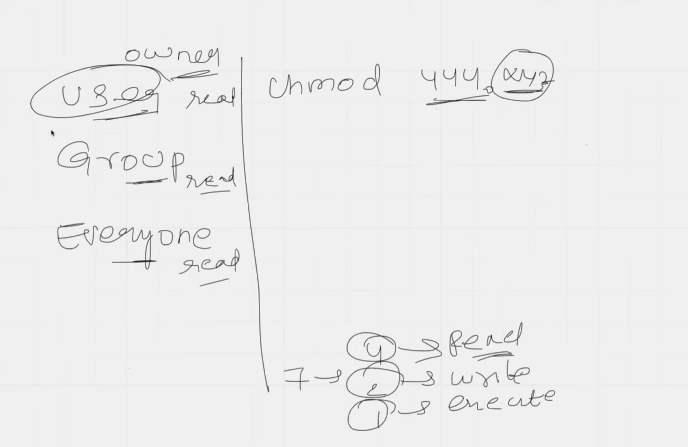 owner
User read
Group read
Everyone read
chmod 444 xyz
4 → Read
7 → 2 → write
1 → execute